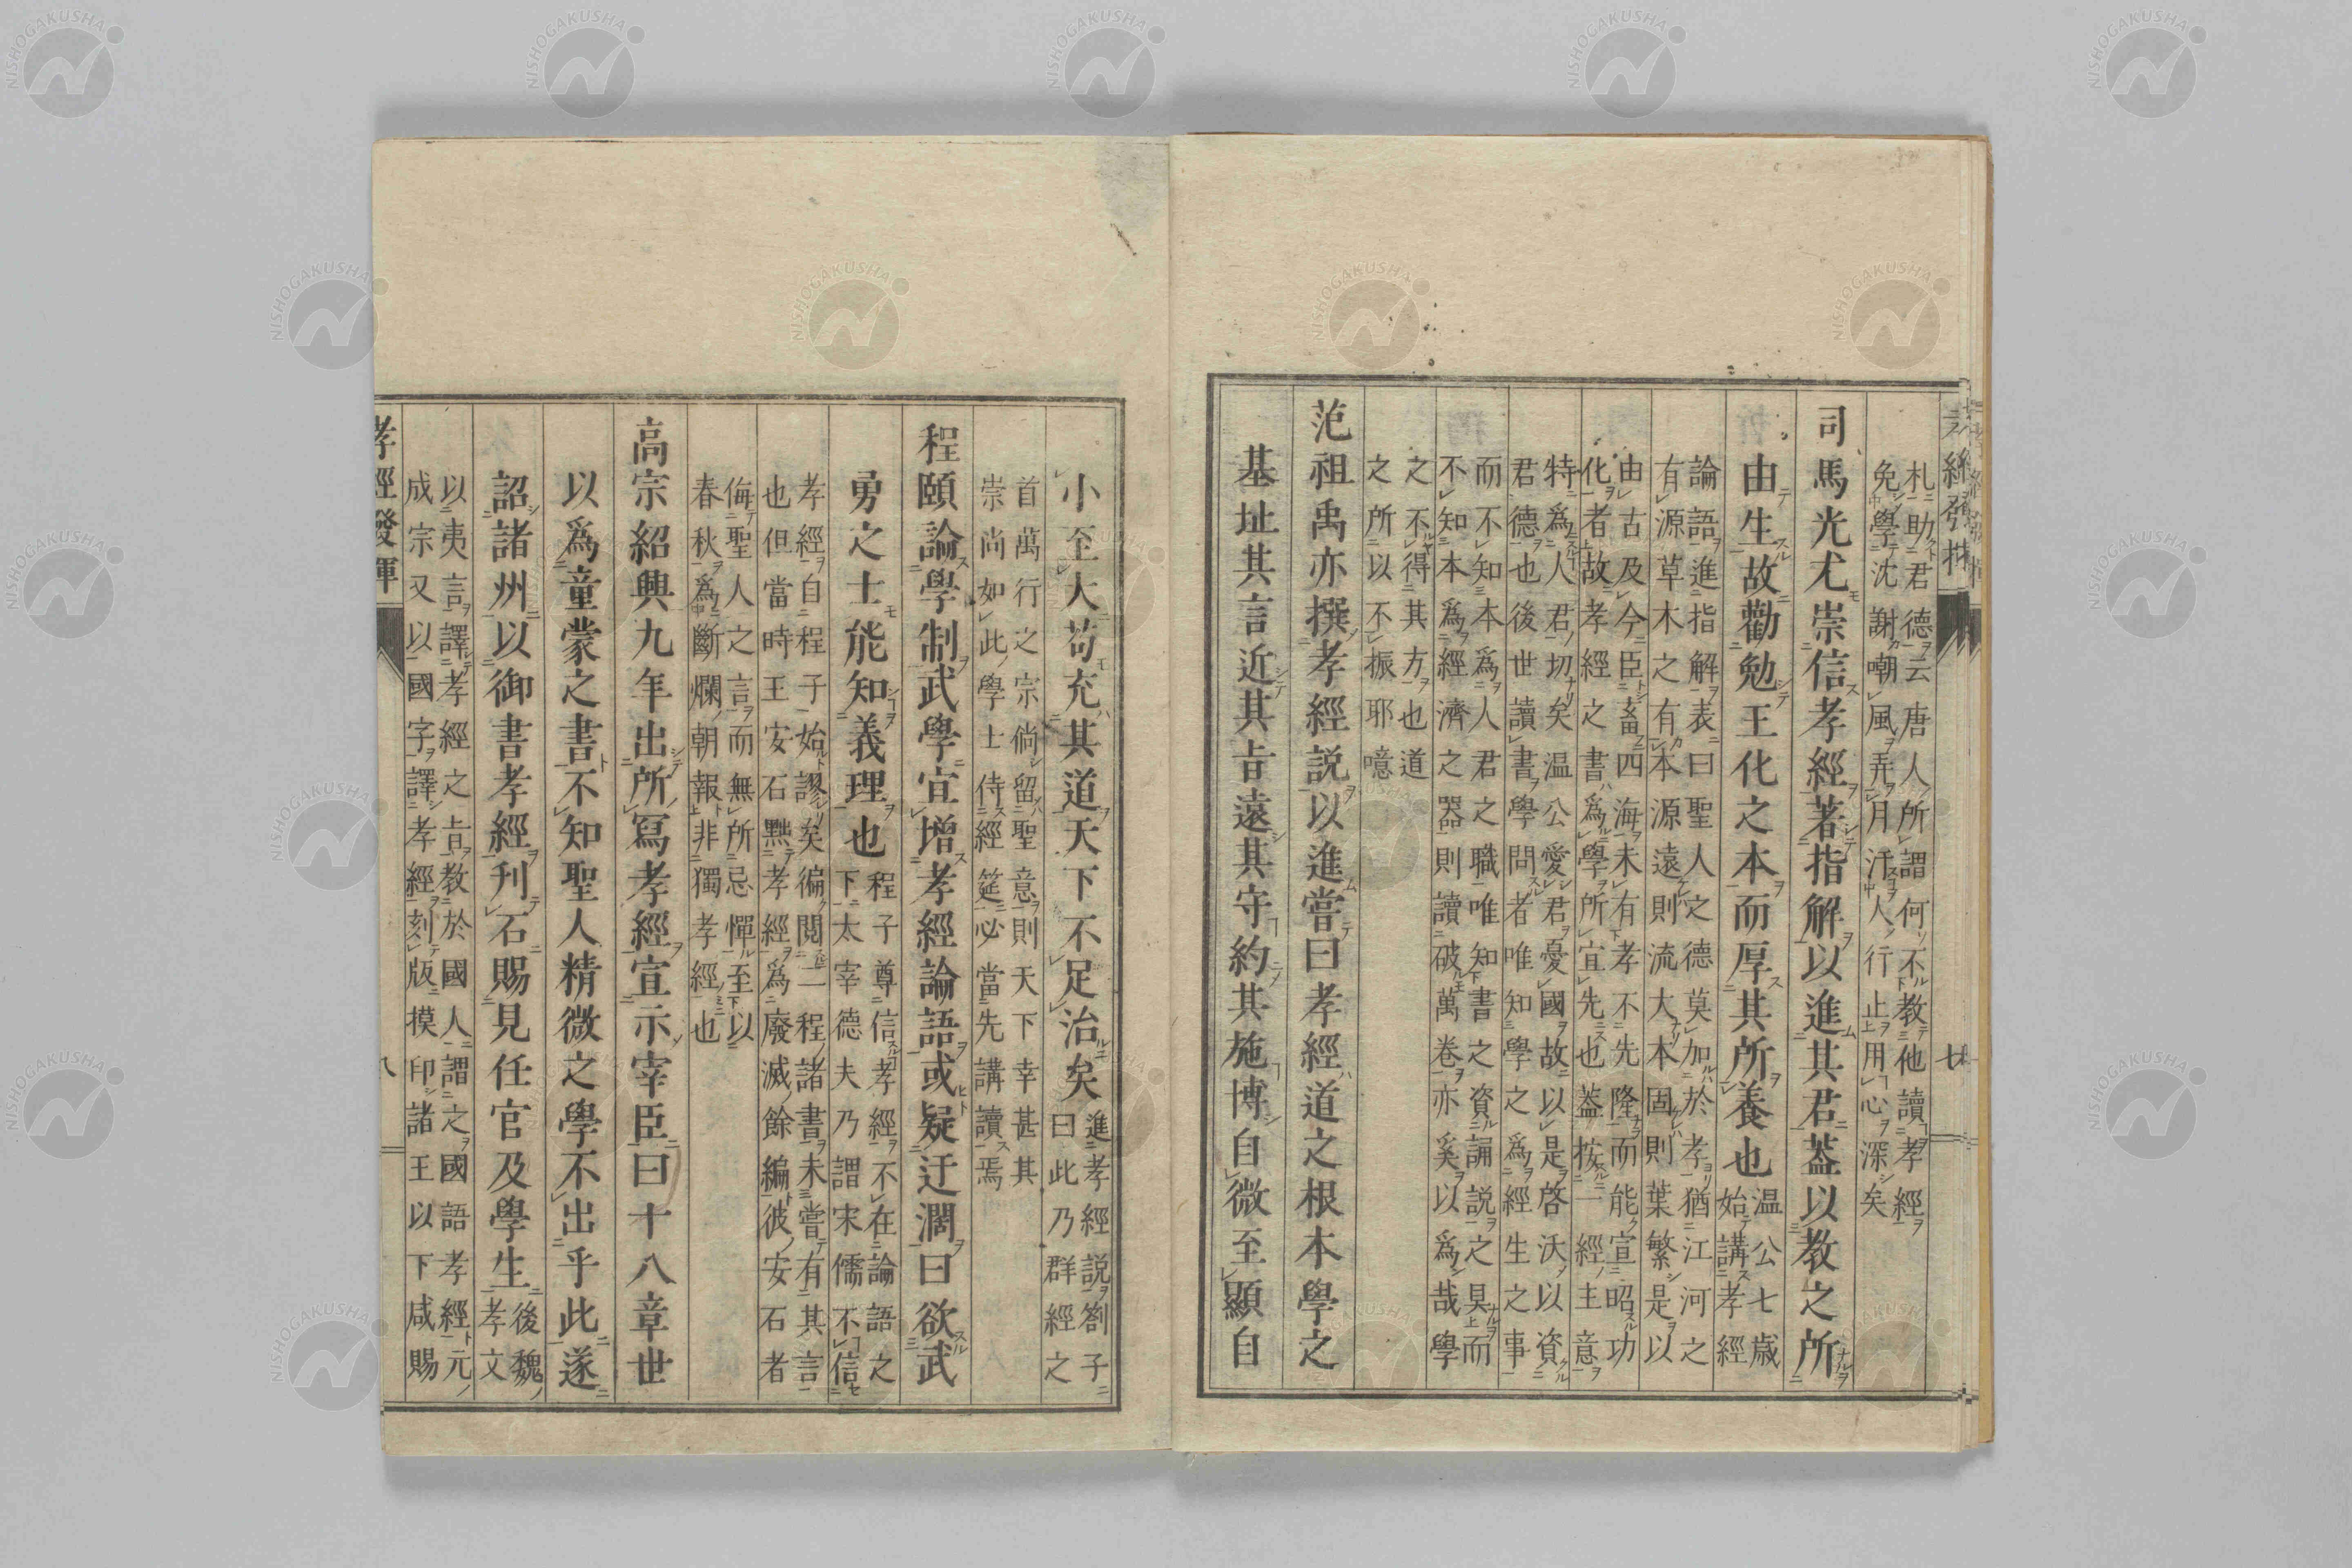 札助君德云唐人所謂何不教他讀孝經
免學沈謝嘲風弄月汗人行止用心深矣
司馬光尤崇信孝經著指解以進其君葢以教之所
由生故勸勉王化之本而厚其所養也温公七歳
始講孝經
論語進指解表曰聖人之德莫加於孝猶江河之
有源草木之有本源遠則流大本固則葉繁是以
由古及今臣畜四海未有孝不先隆而能宣昭功
化者故孝經之書爲學所宜先也葢按一經主意
特爲人君切矣温公愛君憂國故以是啓沃以資
君德也後世讀書學問者唯知學之爲經生之事
而不知本爲人君之職唯知書之資誦説之具而
不知本爲經濟之器則讀破萬卷亦奚以爲哉學
之不得其方也道
之所以不振耶噫
范祖禹亦撰孝經説以進嘗曰孝經道之根本學之
基址其言近其㫖遠其守約其施博自微至顯自
小至大苟充其道天下不足治矣進孝經説劄子
曰此乃群經之
首萬行之宗倘留聖意則天下幸甚其
崇尚如此學士侍經筵必當先講讀焉
程頤論學制武學宜增孝經論語或疑迂濶曰欲武
勇之士能知義理也程子尊信孝經不在論語之
下太宰德夫乃謂宋儒不信
孝經自程子始謬矣徧閲二程諸書未嘗有其言
也但當時王安石黜孝經爲廢滅餘編彼安石者
侮聖人之言而無所忌憚至以
春秋爲斷爛朝報非獨孝經也
高宗紹興九年出所冩孝經宣示宰臣曰十八章世
以爲童蒙之書不知聖人精微之學不出乎此遂
詔諸州以御書孝經刋石賜見任官及學生後魏
孝文
以夷言譯孝經之㫖教於國人謂之國語孝經元
成宗又以國字譯孝經刻版摸印諸王以下咸賜
孝經發揮
八
七
NISHOGAKUSHA